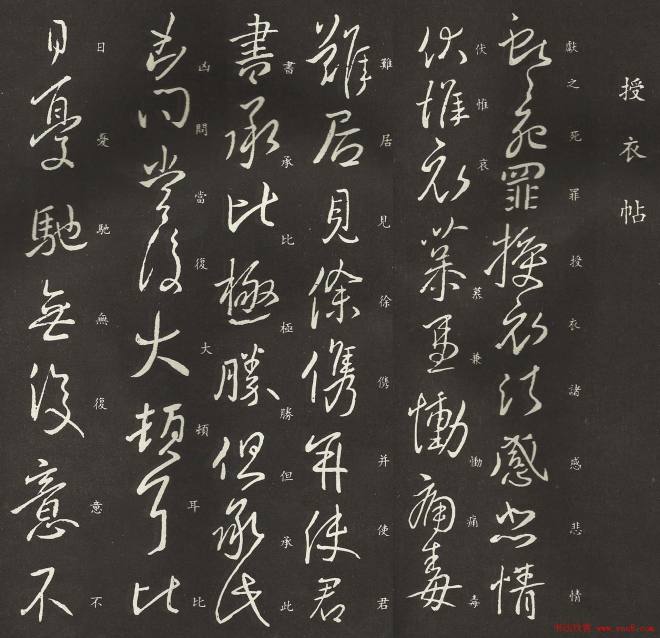 授衣帖
獻之死罪授衣諸感悲情
獻之死罪授衣諸感悲情
伏惟哀慕兼慟痛毒
伏惟哀慕兼慟痛毒
難居見徐儁并使君
難居見徐儁并使君
書承比極勝但承此
書承比極勝但承此
凶問當復大頓耳比
凶問當復大頓耳比
日憂馳無復意不
日憂馳無復意不